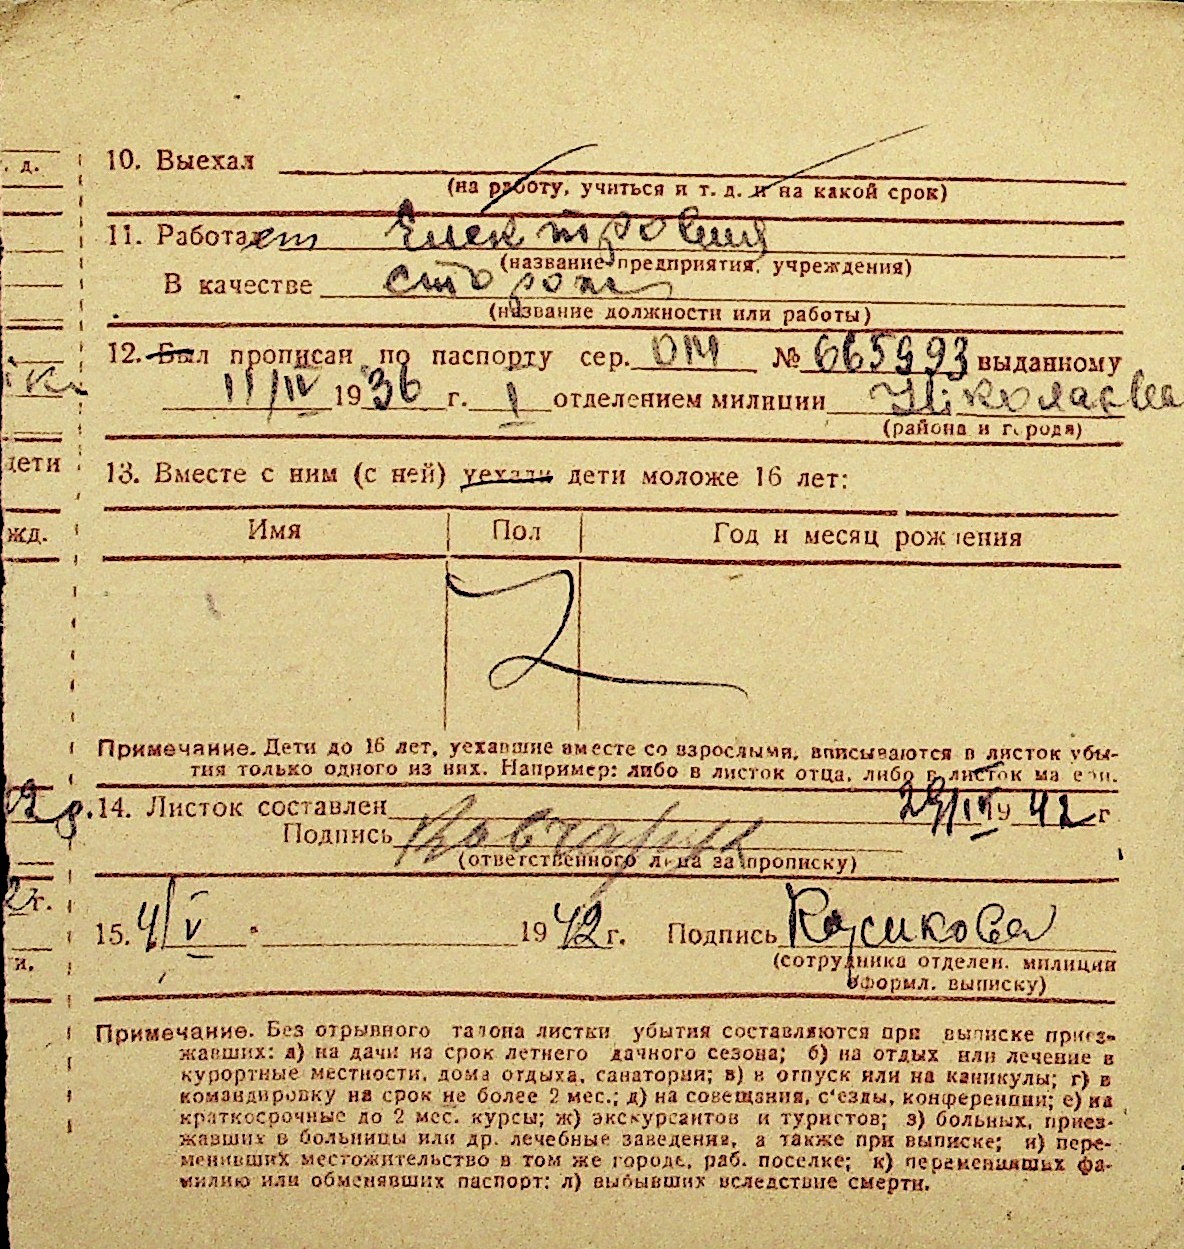 . д.
10. Выехал
(на работу, учиться и т. д. и на какой срок)
11. Работает
(название предприятия, учреждения)
В качестве сторож
(название должности или работы)
12. Был прописан по паспорту сер. ОМ № 665993 выданному
11/IV 1936 г. I отделением милиции
(района и города)
дети
13. Вместе с ним (с ней) уехали дети моложе 16 лет:
жд.
Имя Пол Год и месяц рождения
Примечание. Дети до 16 лет, уехавшие вместе со взрослыми, вписываются в листок убы-
тия только одного из них. Например: либо в листок отца, либо в листок матери.
14. Листок составлен 29/IV 1942 г
Подпись
(ответственного лица за прописку)
г.
15. 4/V 1942 г. Подпись
(сотрудника отделен. милиции
оформл. выписку)
и.
Примечание. Без отрывного талона листки убытия составляются при выписке приез-
жавших: а) на дачи на срок летнего дачного сезона; б) на отдых или лечение в
курортные местности, дома отдыха, санатории; в) в отпуск или на каникулы; г) в
командировку на срок не более 2 мес.; д) на совещания, с'езды, конференции; е) на
краткосрочные до 2 мес. курсы; ж) экскурсантов и туристов; з) больных, приез-
жавших в больницы или др. лечебные заведения, а также при выписке; и) пере-
менивших местожительство в том же городе, раб. поселке; к) переменивших фа-
милию или обменявших паспорт; л) выбывших вследствие смерти.